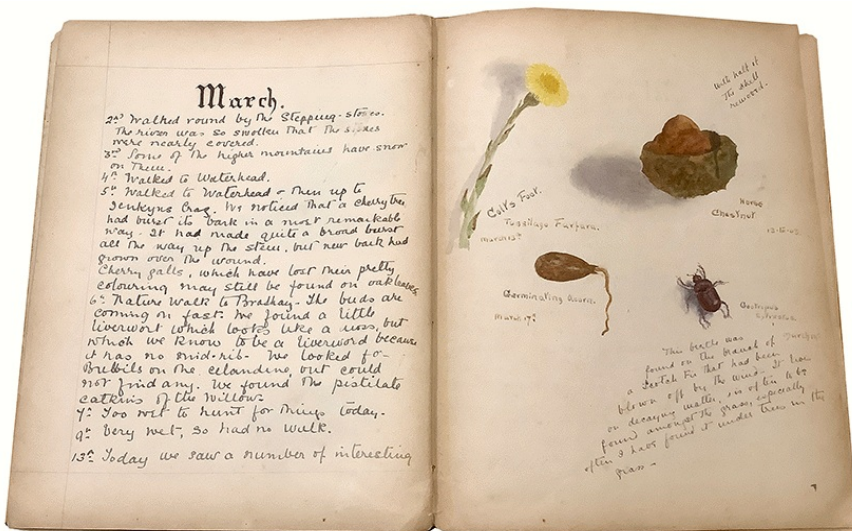 March.
2nd Walked round by the Stepping-stones.
The river was so swollen that the stones
were nearly covered.
3rd Some of the higher mountains have snow
on them.
4th Walked to Waterhead.
5th Walked to Waterhead & then up to
Jenkyns Crag. We noticed that a cherry tree
had burst its bark in a most remarkable
way. It had made quite a broad burst
all the way up the stem, but new bark had
grown over the wound.
Cherry galls, which have lost their pretty
colouring may still be found on oak leaves.
6th Nature Walk to Brathay. The buds are
coming on fast. We found a little
liverwort which looks like a moss, but
which we know to be a liverword because
it has no mid-rib. We looked for
Bulbils on the celandine, but could
not find any. We found the pistilate
catkins of the Willow.
7th Too wet to hunt for things today.
9th Very wet, so had no walk.
13th Today we saw a number of interesting
With half of
the shell
removed.
Colt's Foot.
Tussilago Farfara.
March 13th
Horse
Chestnut
Germinating Acorn.
March 17th
This beetle was
found on the branch of
a Scotch Fir that had been
blown off by the wind. It lives
on decaying matter, is often to be
found amongst the grass, especially
often I have found it under trees in the
grass.